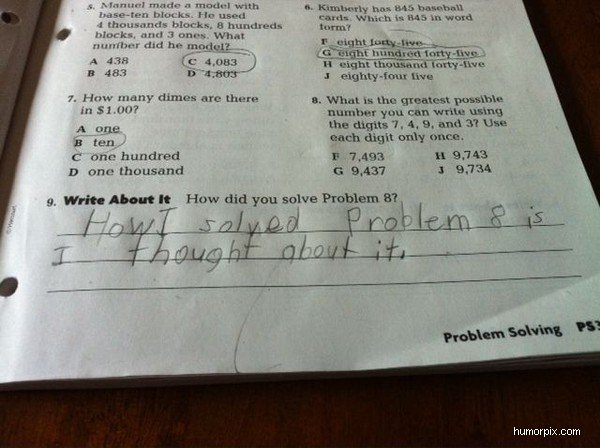 5. Manuel made a model with
base-ten blocks. He used
4 thousands blocks, 8 hundreds
blocks, and 3 ones. What
number did he model?
A 438
C 4,083
B 483
D 4,803
6. Kimberly has 845 baseball
cards. Which is 845 in word
form?
F eight forty-five
G eight hundred forty-five
H eight thousand forty-five
J eighty-four five
7. How many dimes are there
in $1.00?
A one
B ten
C one hundred
D one thousand
8. What is the greatest possible
number you can write using
the digits 7, 4, 9, and 3? Use
each digit only once.
F 7,493
H 9,743
G 9,437
J 9,734
9. Write About It How did you solve Problem 8?
How I solved Problem 8 is
I thought about it.
Problem Solving PS3
humorpix.com